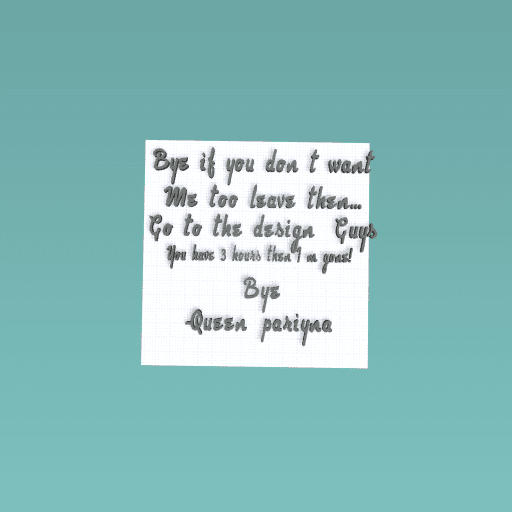 Bye if you don t want
Me too leave then...
Go to the design Guys
You have 3 hours then I m gone!
Bye
-Queen pariyna